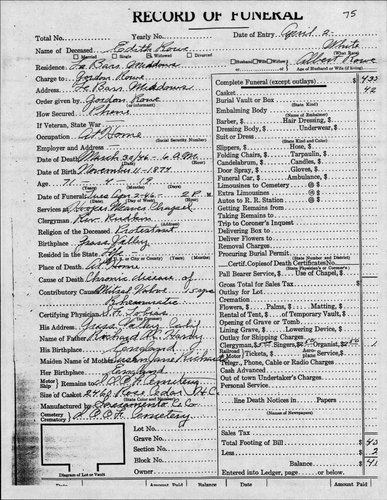 RECORD OF FUNERAL
75
Total No.
Yearly No.
Date of Entry April 2
Name of Deceased Edith Rowe
White
(What Race)
Married Single Widowed Divorced
Husband Wife Widow Albert Rowe
Age of Husband or Wife (if living)
Residence La Barr Meadows
Charge to Gordon Rowe
Address La Barr Meadows
Order given by Gordon Rowe
How Secured Phone
If Veteran, State War
Occupation At Home
(Social Security Number)
Employer and Address
Date of Death March 30/46 - 6 A.M.
Date of Birth November 11-1874
Age 71 - 4 - 19
Date of Funeral Tues Apr 2-46 - 2 P.M.
Services at Hooper Weaver Chapel
Clergyman Rev.
Religion of the Deceased Protestant
Birthplace Grass Valley
Resided in the State Life
Place of Death At Home
Cause of Death Chronic disease of
Contributory Cause Mitral Valve
Rheumatic
Certifying Physician
His Address Grass Valley Calif
Name of Father Richard
His Birthplace England
Maiden Name of Mother
Her Birthplace England
Motor Ship Remains to I.O.O.F. Cemetery
Size of Casket
Manufactured by Sacramento C. Co.
Cemetery
Crematory I.O.O.F. Cemetery
Lot No.
Grave No.
Section No.
Block No.
Owner
Diagram of Lot or Vault
Complete Funeral (except outlays) $
Casket
Burial Vault or Box
(State Kind)
Embalming Body
(Name of Embalmer)
Barber, $ Hair Dressing, $
Dressing Body, $ Underwear, $
Suit or Dress
(State Kind and Color)
Slippers, $ Hose, $
Folding Chairs, $ Tarpaulin, $
Candelabrum, $ Candles, $
Door Spray, $ Gloves, $
Funeral Car, $ Ambulance, $
Limousines to Cemetery @ $
Extra Limousines @ $
Autos to R. R. Station @ $
Getting Remains from
Taking Remains to
Trip to Coroner's Inquest
Delivering Box to
Deliver Flowers to
Removal Charges
Procuring Burial Permit
(State Number and District)
Certif. Copies of Death Certificates No.
(State Physician's or Coroner's)
Pall Bearer Service, $ Use of Chapel, $
Gross Total for Sales Tax $
Outlay for Lot
Flowers, $ Palms, $ Matting, $
Rental of Tent, $ of Temporary Vault, $
Opening of Grave or Tomb
Lining Grave, $ Lowering Device, $
Outlay for Shipping Charges
Clergyman, $ Singers, $ Organist, $
Tel., Phone, Cable or Radio Charges
Cash Advanced
Out of town Undertaker's Charges
Personal Service
line Death Notices in Papers
(Names of Newspapers)
Sales Tax
Total Footing of Bill $
Less $
Balance $
Entered into Ledger, page or below.
Date Amount Paid Date Amount Paid